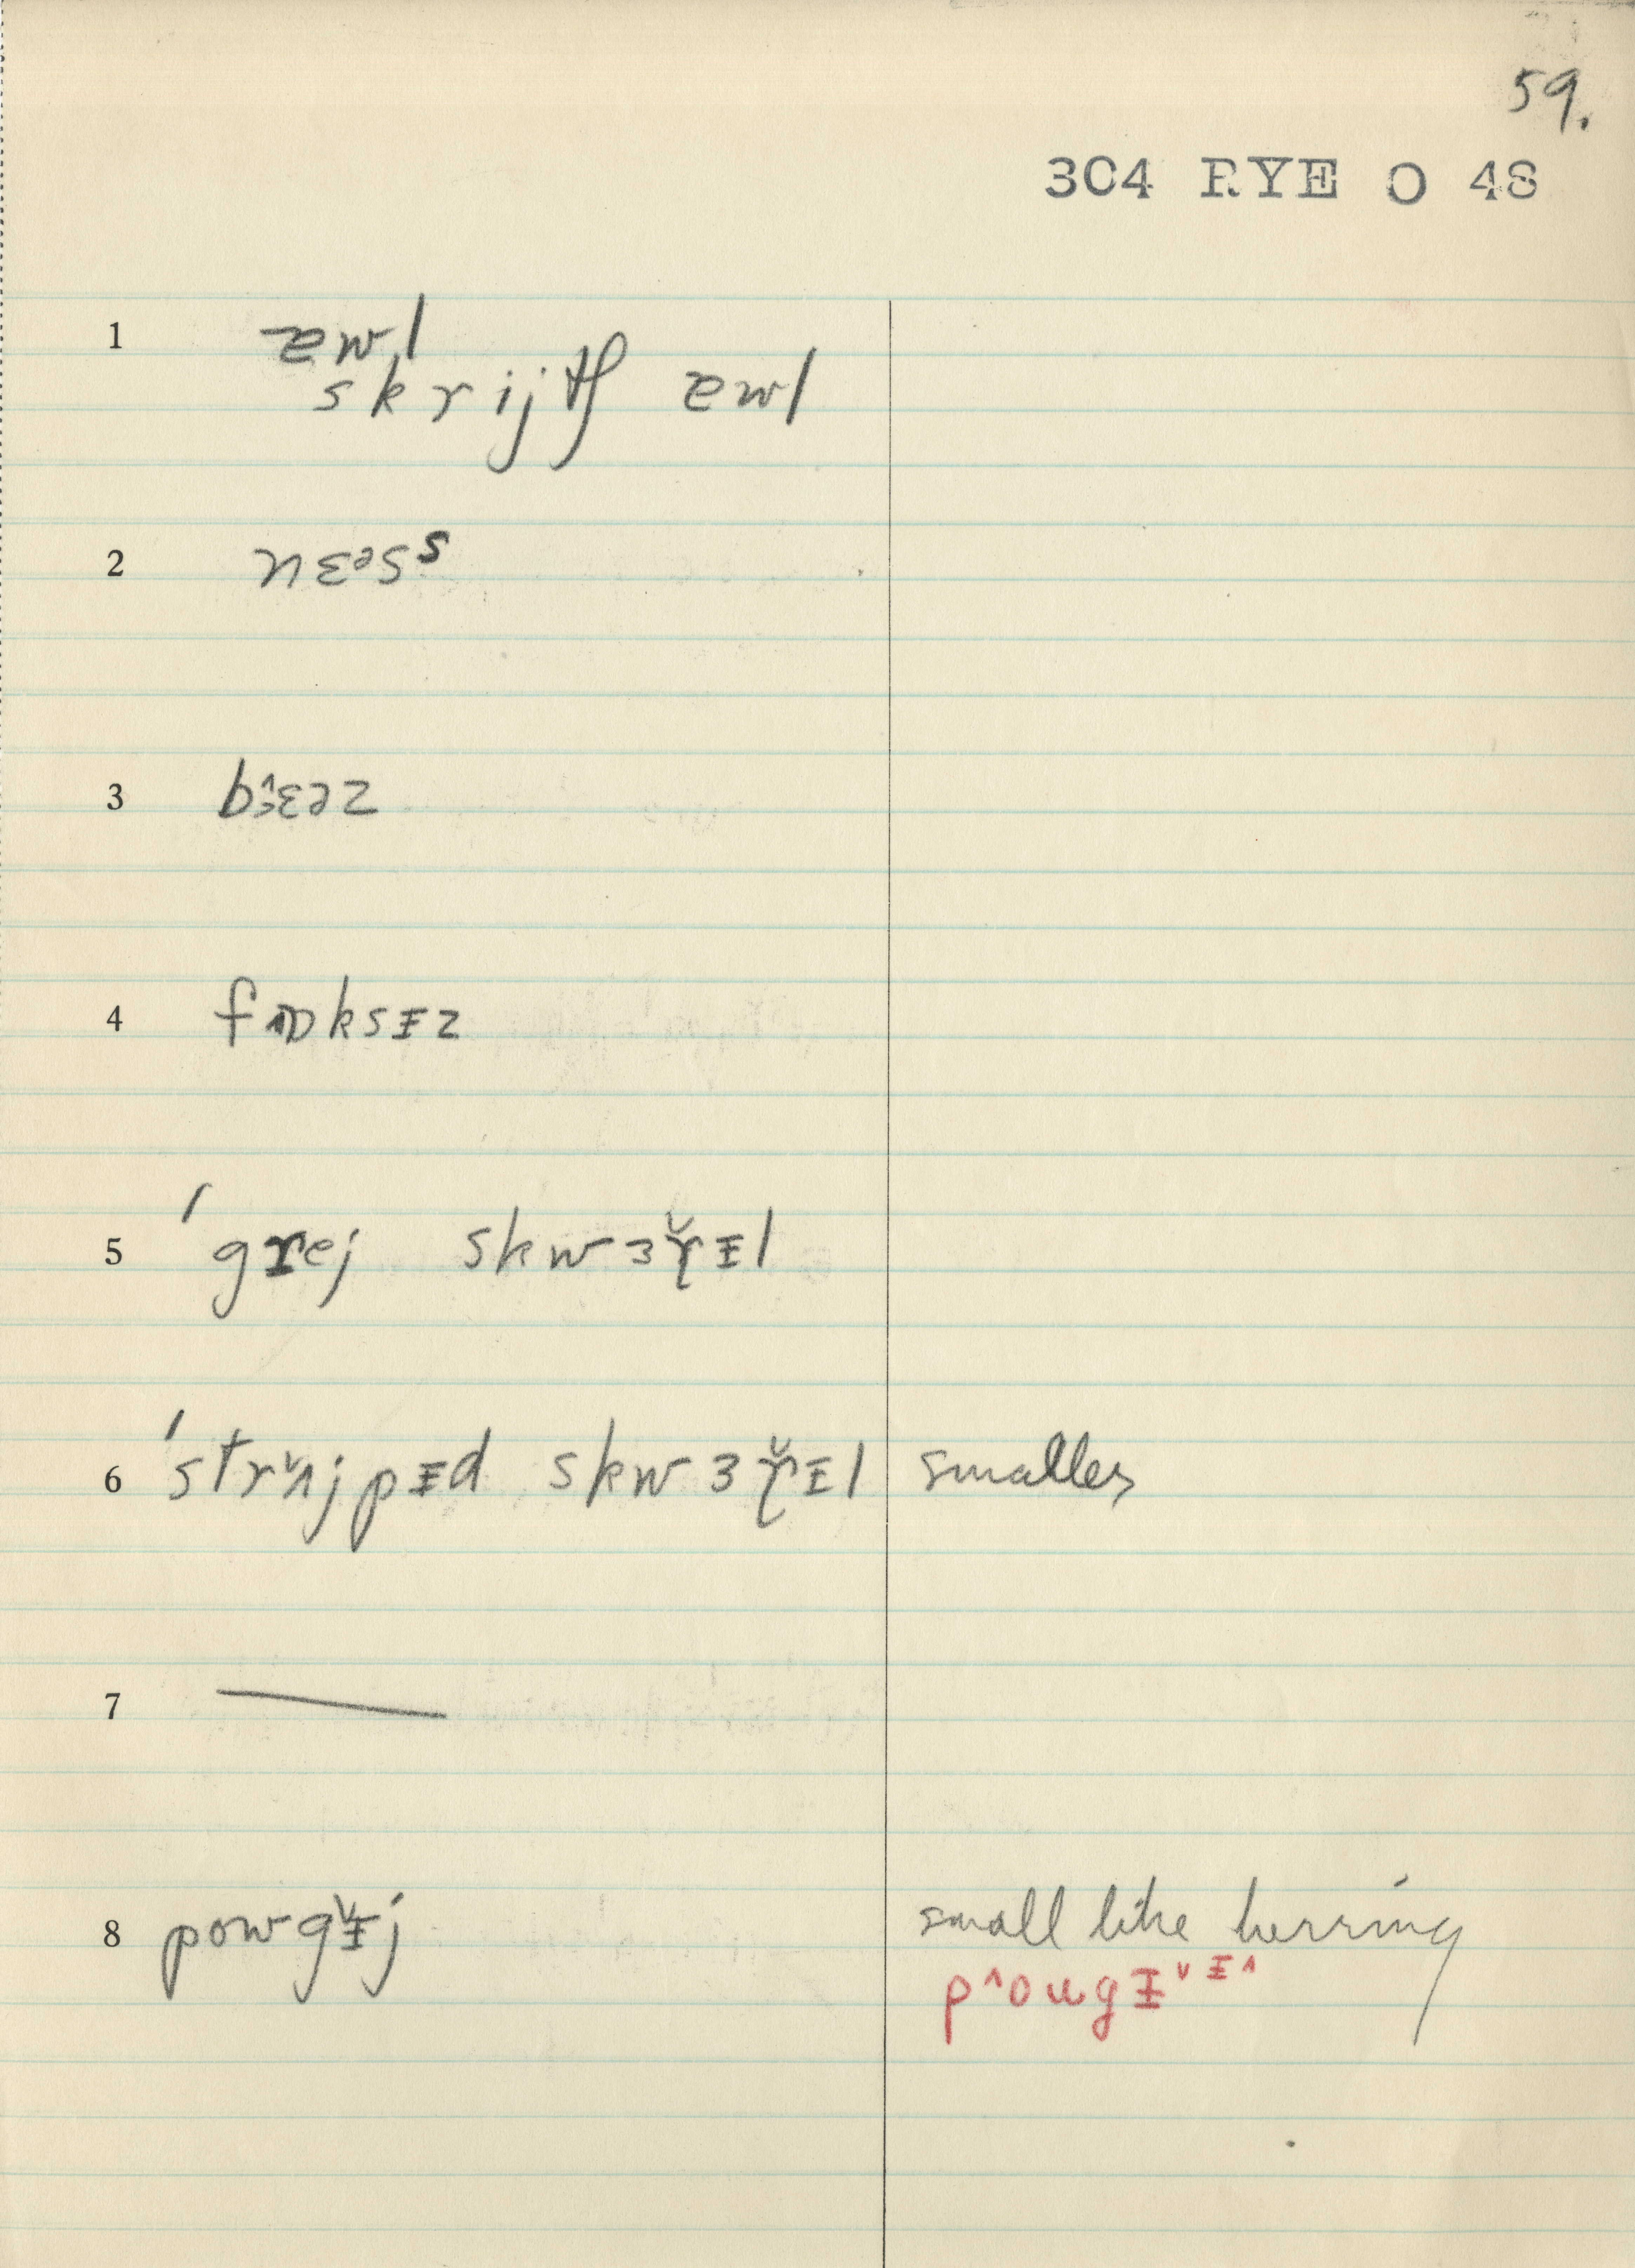 59.
304 RYE O 48
1 ɐwl
skrijtʃ ɐwl
2 nɛᵊsˢ
3 bɛəz
4 fɒksᵻz
5 ˈgrej skwɜr̆ᵻl
6 ˈstrʌ̆jpᵻd skwɜr̆ᵻl smaller
7 —
8 powgᵻ̆j small like herring
p^ougᵻˇᵻ^